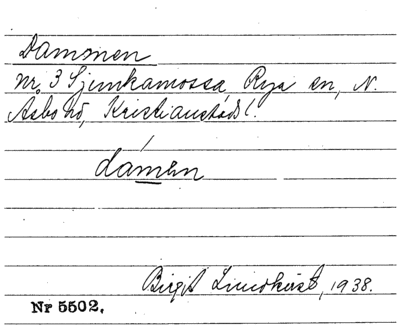 Dammen
nr 3 Sjunkamossa, Rya sn, N.
Åsbo hd, Kristianstads l.
dámen
Birgit Lindkvist, 1938.
Nr 5502.